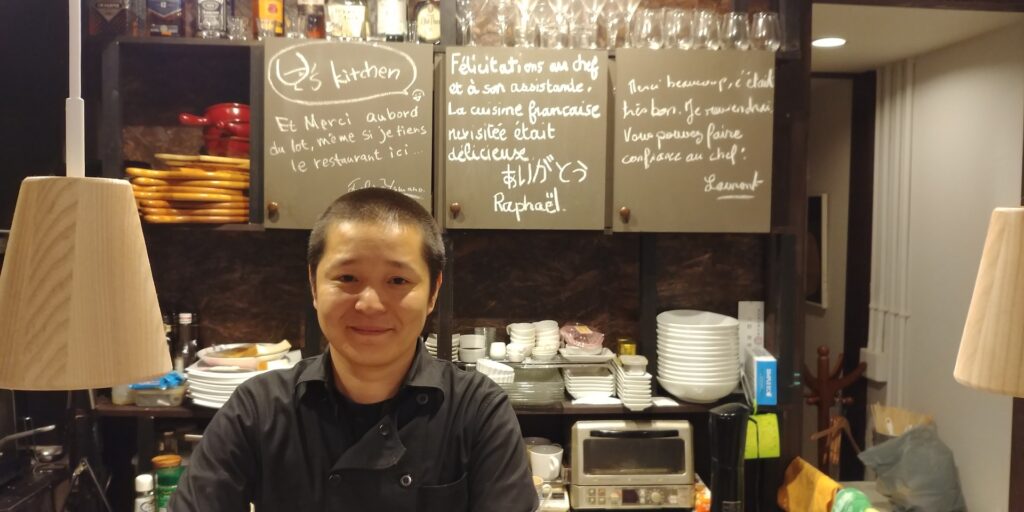 's kitchen
Et Merci aubord
du lot, même si je tiens
le restaurant ici...
Félicitations au chef
et à son assistante.
La cuisine française
revisitée était
délicieuse.
ありがとう
Raphaël.
Merci beaucoup, c'était
très bon. Je reviendrai
Vous pouvez faire
confiance au chef!
Laurent